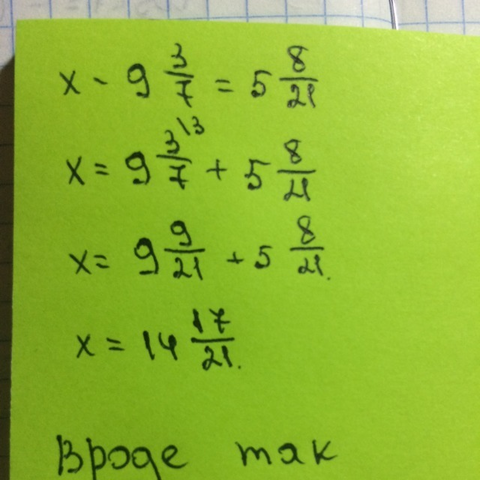 x - 9 3/7 = 5 8/21
x = 9 3/7 \3 + 5 8/21
x = 9 9/21 + 5 8/21.
x = 14 17/21.
Вроде так